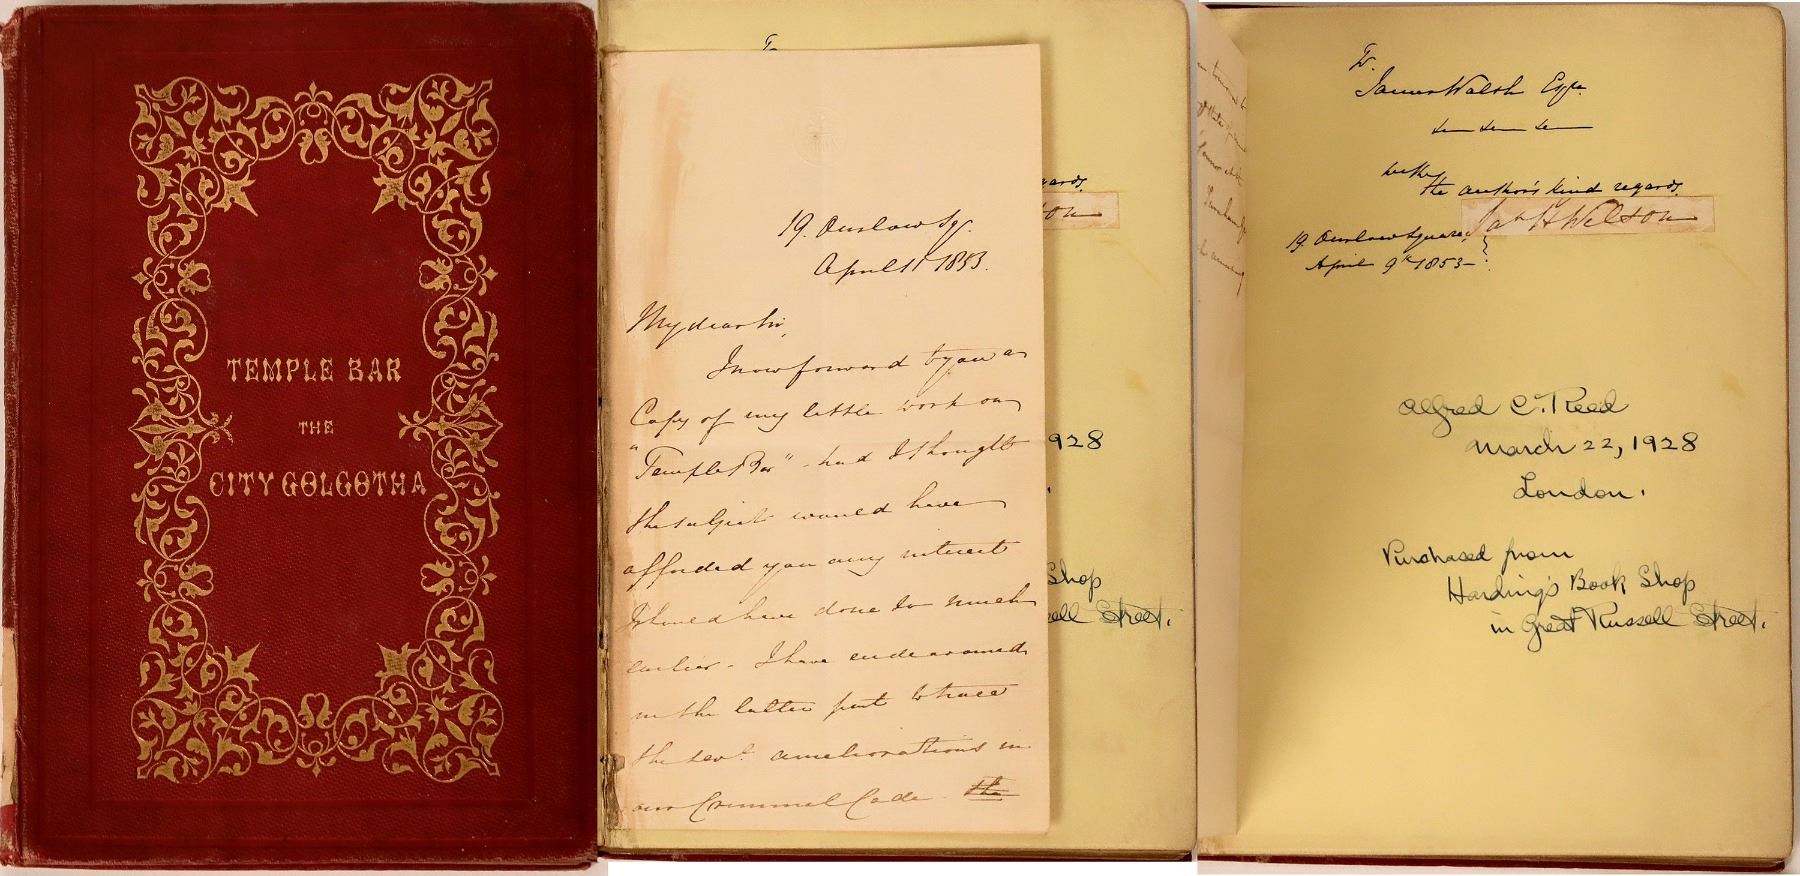 TEMPLE BAR
THE
CITY GOLGOTHA
19. Onslow Sqr.
April 11 1853.
My dear Sir,
I now forward to you a
Copy of my little work on
"Temple Bar" - had I thought
the subject would have
afforded you any interest
I should have done so much
earlier - I have endeavoured
in the latter part to trace
the sevl. ameliorations in
our Criminal Code. the
To
gards.
on
928
Shop
sell Street.
To
James Walsh Esqre.
with
the author's kind regards.
Jas H Wilson
19. Onslow Square,
April 9th 1853
Alfred C. Reed
March 22, 1928
London.
Purchased from
Harding's Book Shop
in Great Russell Street.